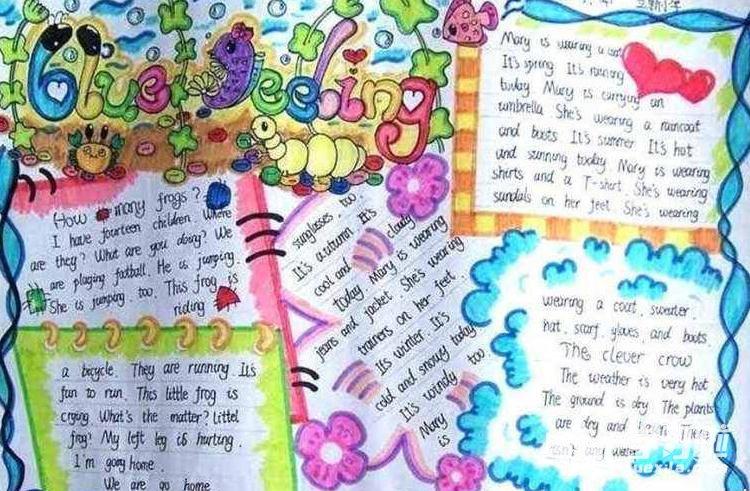 Blue Feeling
How many frogs?
I have fourteen children. Where
are they? What are you doing? We
are playing football. He is jumping.
She is jumping, too. This frog is
riding
a bicycle. They are running It's
fun to run. This little frog is
crying What's the matter? Littel
frog! My left leg is hurting.
I'm gong home.
We are go home
sunglasses, too.
It's autumn. It's
cool and cloudy
today Mary is wearing
jeans and jacket. She's wearing
trainers on her feet.
Its winter. It's
cold and snowy today
It's windy too
Mary
is
Mary is wearing a
It's spring It's raining
today Mary is carrying an
umbrella She's wearing a raincoat
and boots It's summer It's hot
and sunning today Mary is wearing
shirts and a T-shirt. She's wearing
sandals on her feet. She's wearing
wearing a coat, sweater,
hat, scarf, gloves, and boots.
The clever crow
The weather is very hot.
The ground is dry The plants
are dry and There
any